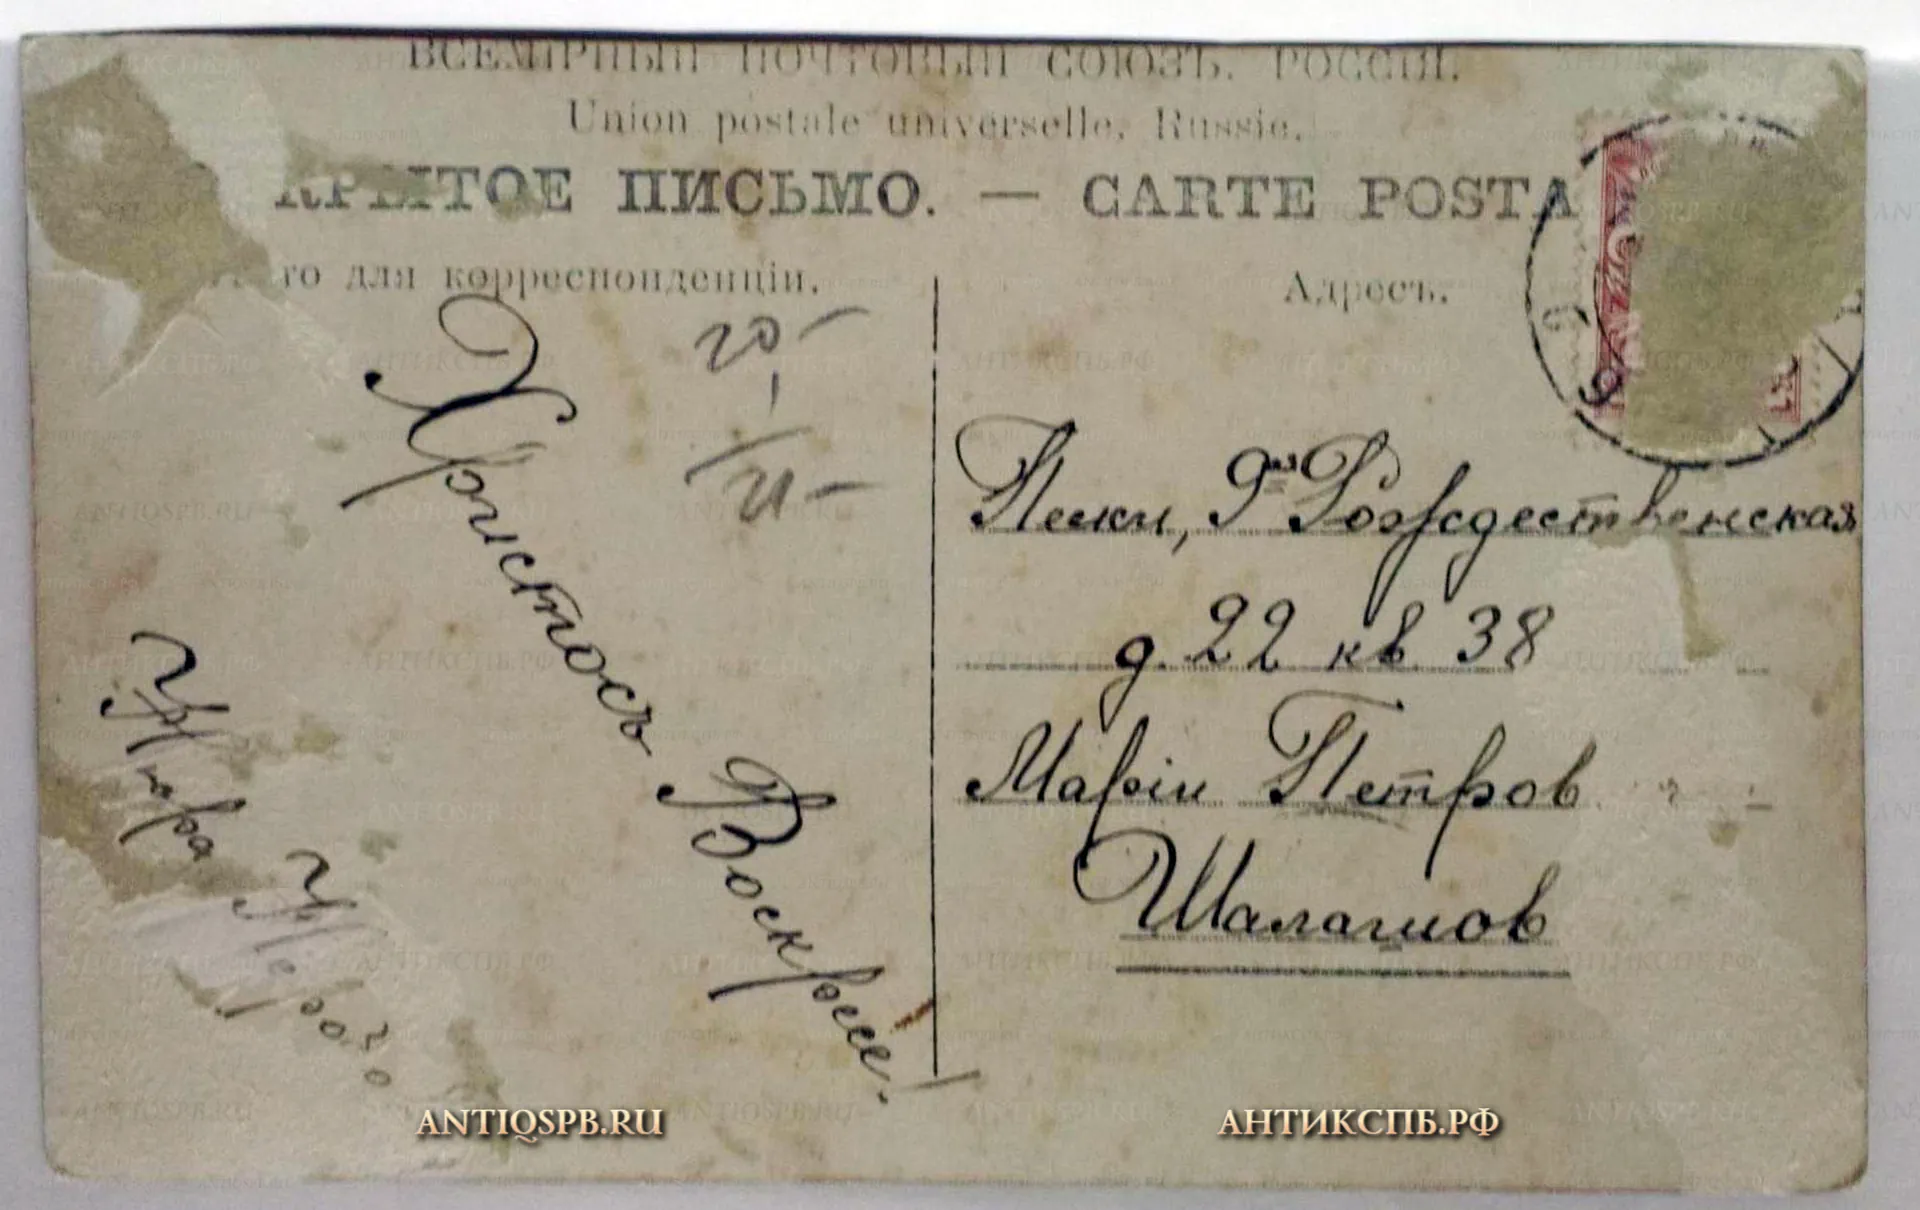 ВСЕМІРНЫЙ ПОЧТОВЫЙ СОЮЗЪ. РОССІЯ.
Union postale universelle, Russie.
КРЫТОЕ ПИСЬМО. — CARTE POSTA
то для корреспонденціи.
Адресъ.
Христосъ Воскресе!
Пески, 9ая Рождественская
д. 22 кв. 38
Маріи Петров
Шалашов
ANTIQSPB.RU
АНТИКСПБ.РФ